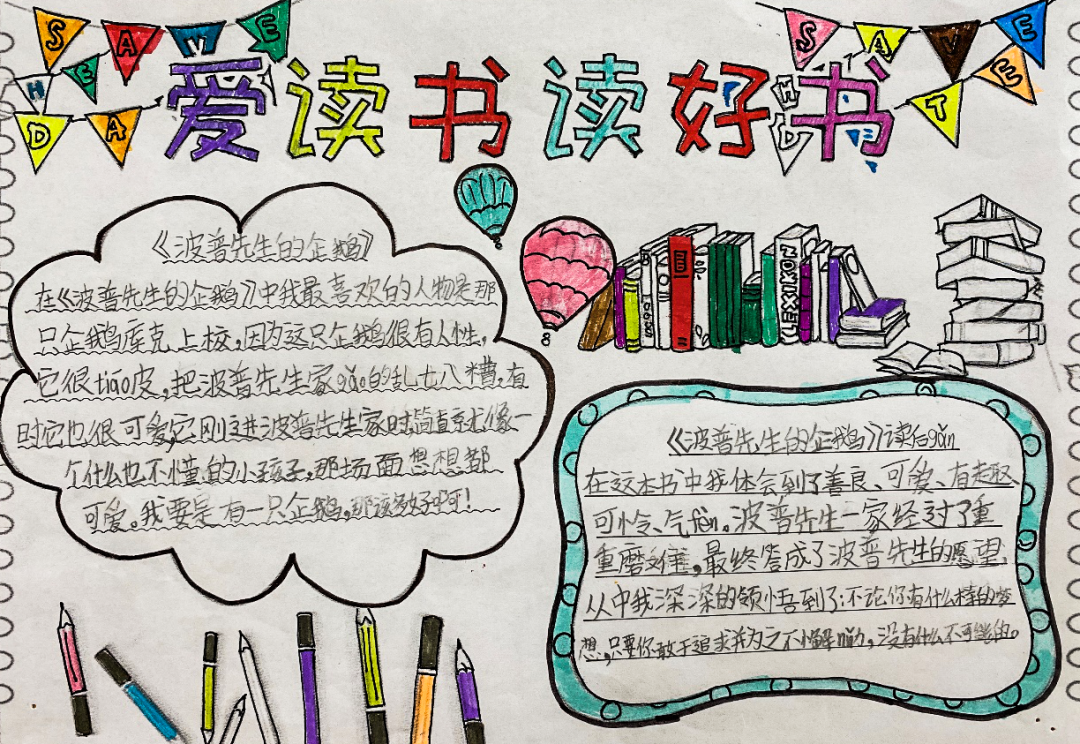 SAVE
THE
DAT
SAVE
THE
DATE
爱读书读好书
LEXIXON
《波普先生的企鹅》
在《波普先生的企鹅》中我最喜欢的人物是那
只企鹅库克上校,因为这只企鹅很有人性,
它很tiáo皮,把波普先生家gǎo的乱七八糟,有
时它也很可爱,它刚进波普先生家时,简直就像一
个什么也不懂的小孩子,那场面想想都
可爱。我要是有一只企鹅,那该多好啊!
《波普先生的企鹅》读后gǎn
在这本书中我体会到了善良、可爱、有趣、
可怜、气fèn。波普先生一家经过了重
重磨难,最终答成了波普先生的愿望,
从中我深深的领悟到了:不论你有什么样的梦
想,只要你敢于追求并为之不懈nǔ力,没有什么不可能的。